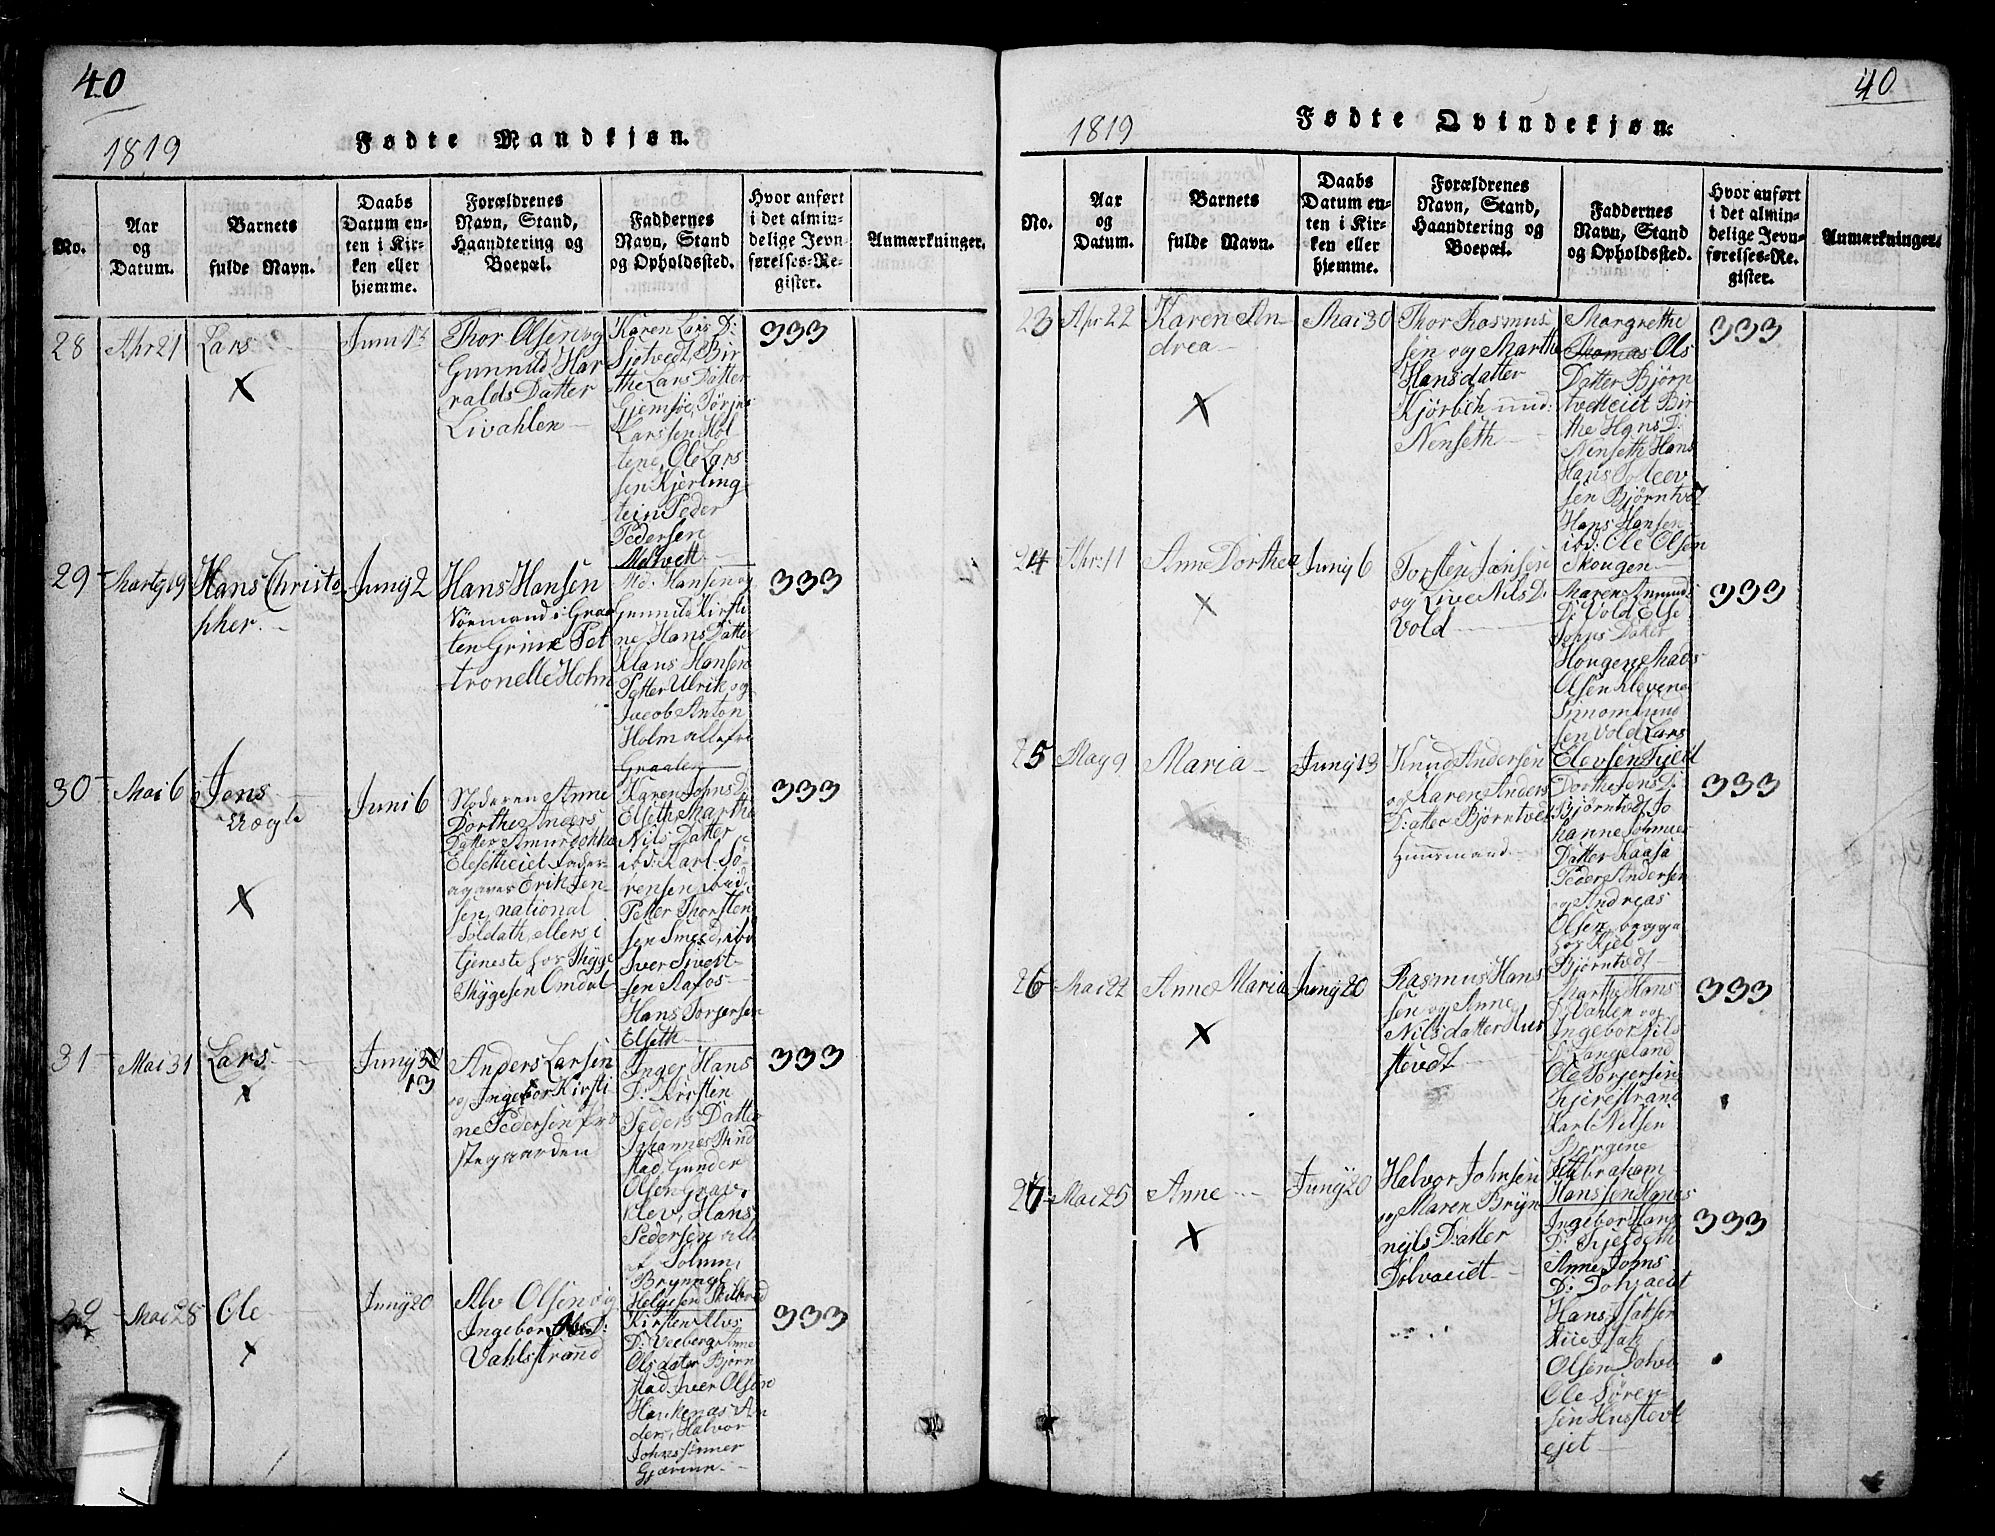 40
1819
Fødte Mandkjøn.
No.
Aar og Datum.
Barnets fulde Navn.
Daabs Datum enten i Kirken eller hjemme.
Forældrenes Navn, Stand, Haandtering og Boepæl.
Faddernes Navn, Stand og Opholdssted.
Hvor anført i det almindelige Jevnførelses-Register.
Anmærkninger.
28
Apr 21
Lars
x
Juni
Thor Olsen og
Gunnild Har
ralds Datter
Livahlen
Karen Lars D:
Sjotvedt, Bir
the Lars Datter
Gjemsöe, Jörjen
Larssen Hol
tene, Ole Lars
sen Kjerling
tein Peder
Pedersen
333
29
Marty 19
Hans Christo
pher.
Juny 2
Hans Hansen
i Graa
ten Grine Pet
tronelle Holm
Md. Hansen og
Gunnild Kirsti
ne Hans Datter
Klaus Hansen
Petter Ulrik og
Jacob Anton
Holm alle fra
Graaten
333
30
Mai 6
Jens
x
Juni 6
Moderen Anne
Dorthe Anders
Datter
Elseth eiet Fader
Erik Jen
sen, national
Soldath, ellers i
tjeneste hos Thyge
Thygesen Omdal
Karen Johns D:
Elseth, Marthe
Nils Datter
ibd: Karl Sö
rensen ibid:
Petter Thorsten
sen Smed, ibd
Iver Sivert
sen Aafos
Hans Torgersen
Elseth
333
31
Mai 31
Lars
x
Juny
13
Anders Larsen
og Ingebor Kirsti
ne Pedersen fra
stegaarden
Inger Hans
D: Kirsten
Peders Datter
Johannes Rind
stad, Gunder
Olsen Grav,
klev, Hans
Pedersen alle
f. Solum,
Bryngel
Helgesen Skilbred
333
Mai 28
Ole
x
Juny 20
Alv Olsen og
Ingebor D:
Vahlstrand
Kirsten Alvs
D: Veeberg Anne
Olsdater Björn
stad, Iver Olsen
Haukenæs An
ders, Halvor
Johnssönner
333
40
1819
Fødte Qvindekjøn.
No.
Aar og Datum.
Barnets fulde Navn.
Daabs Datum enten i Kirken eller hjemme.
Forældrenes Navn, Stand, Haandtering og Boepæl.
Faddernes Navn, Stand og Opholdssted.
Hvor anført i det almindelige Jevnførelses-Register.
Anmærkninger.
23
Apr 22
Karen An
drea
x
Mai 30
Thor Rasmus
sen og Marthe
Hansdatter
Kjörbek und:
Nenseth
Margrethe
Thomas Ols
Datter Björn
tvetteiet Bir
the Hans D:
Nenseth Hans
Hans Tolleev
sen Björntvet
Hans Hansen
ibd: Ole Olsen
Skougen
333
24
Apr: 11
Anne Dorthea
x
Juny 6
Torsten Jansen
og Live Nils D:
Vold
Maren Amund:
D: Vold Else
Johns Datter
Hougen Mads
Olsen Klevene
Simon Amund
sen Vold Lars
Elevsen Fjeld
333
25
May 9
Maria
Juny 13
Knud Andersen
og Karen Anders
D:atter Björntvedt
Huusmand
Dorthe Jens D:
Björntvedt, Jo
hanne
Datter Kaasa
Peder Andersen
og Andreas
Olsen, begge
hos Kjel
Björntvedt
333
26
Mai 22
Anne Maria
x
Juny 20
Rasmus Hans
sen og Anne
Nilsdatter Hus
stevdt
Marthe Hans
D: Vahlen og
Ingebor Nils
D: Langeland
Ole Torjersen
Kjerestrand
Karl Nilsen
Bergene
Abraham
Hanssen
333
27
Mai 25
Anne
x
Juny 20
Halvor Johnsen
og Maren Bryn
nils D:atter
Dolvaeiet
Ingebor Hans
D: Fjeldeth
Anne Johns
D: Dolvaeiet
Hans Isaksen
Isak
Olsen Dolva
Ole Sören
sen Husstevt
ejet
333